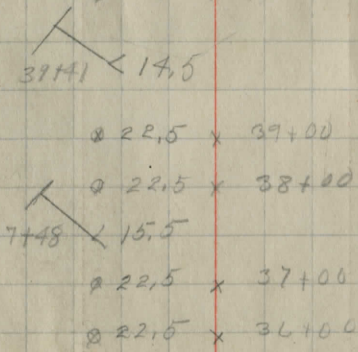 39+41 14.5
22.5 x 39+00
22.5 x 38+00
7+48 15.5
22.5 x 37+00
22.5 x 36+00